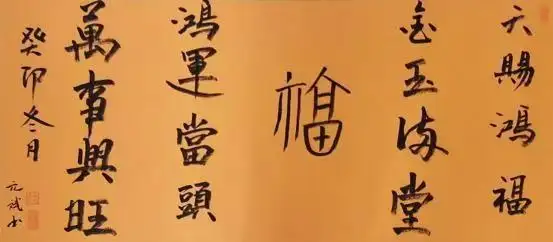 天賜鴻福
金玉滿堂
福
鴻運當頭
萬事興旺
癸卯冬月
元斌书